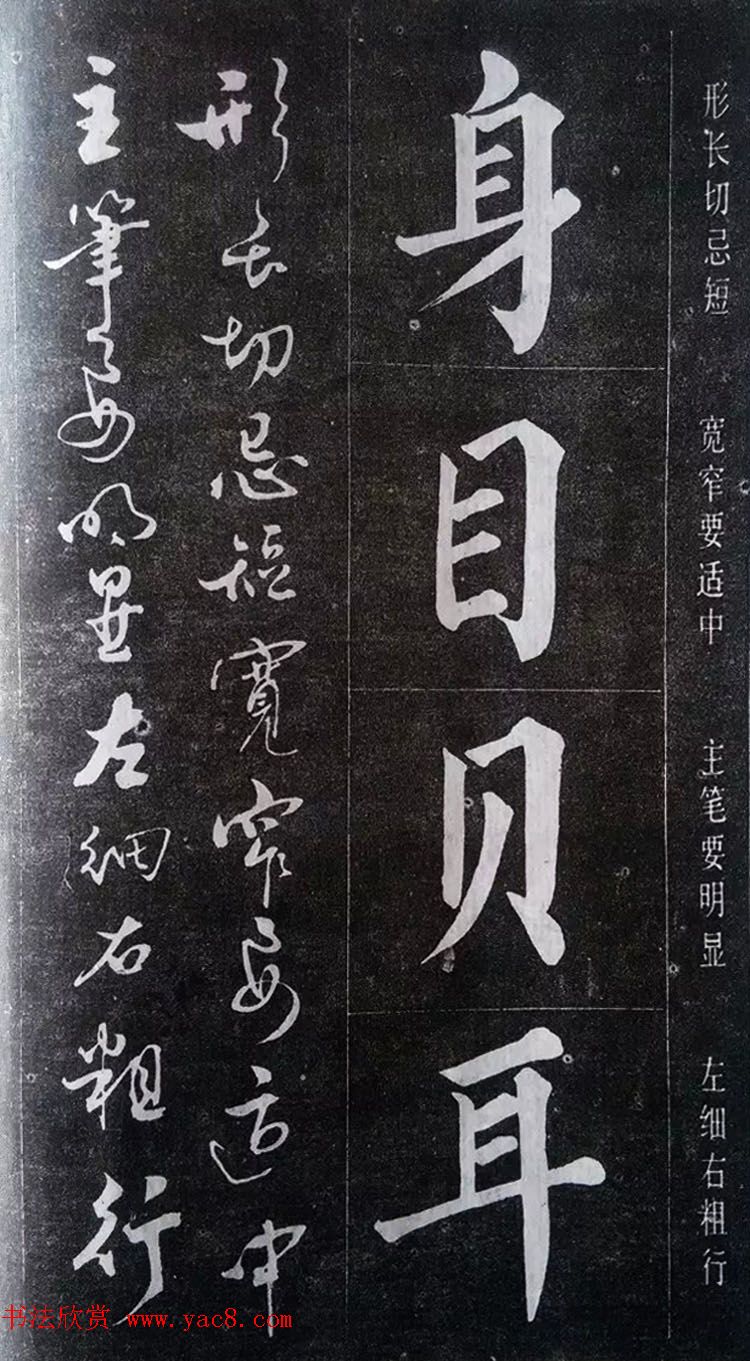 形长切忌短 宽窄要适中 主笔要明显 左细右粗行
身目贝耳
形長切忌短寬窄要適中
主筆要明显左細右粗行
书法欣赏 www.yac8.com